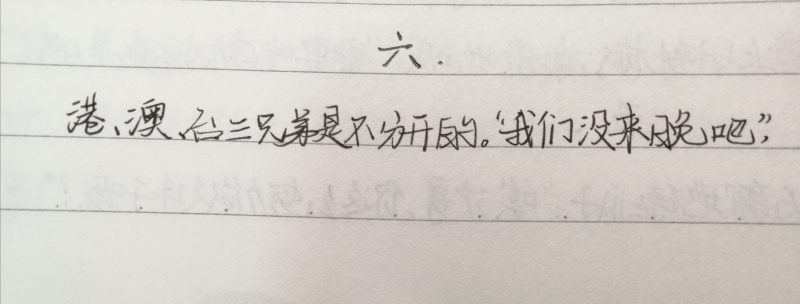 六.
港、澳、台三兄弟是不分开的。“我们没来晚吧”,